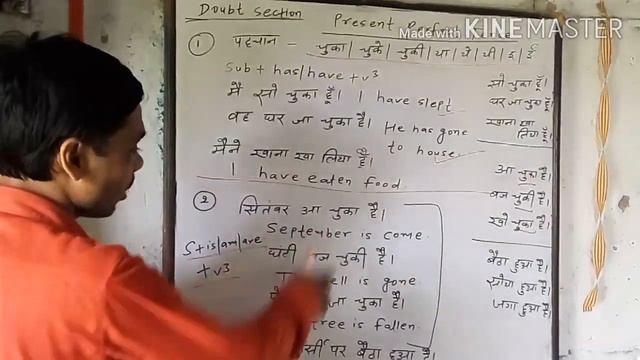 Doubt section
Present
Made with KINEMASTER
① पहचान - चुका / चुके / चुकी / या / ये / यी / इ / ई
Sub + has/have + v3
मै सो चुका हूँ। I have slept
वह घर जा चुका है। He has gone
to house.
मैने खाना खा लिया है।
I have eaten food
② सितंबर आ चुका है।
September is come.
S + is/am/are
+ v3
घंटी बज चुकी है।
is gone
जा चुका है।
is fallen.
पर बैठा हुआ है।
सो चुका हूँ।
घर जा चुका हूँ।
खाना खा
लिया हूँ।
आ चुका है।
बज चुकी है।
खो चुका है।
बैठा हुआ है।
सोया हुआ है।
जगा हुआ है।